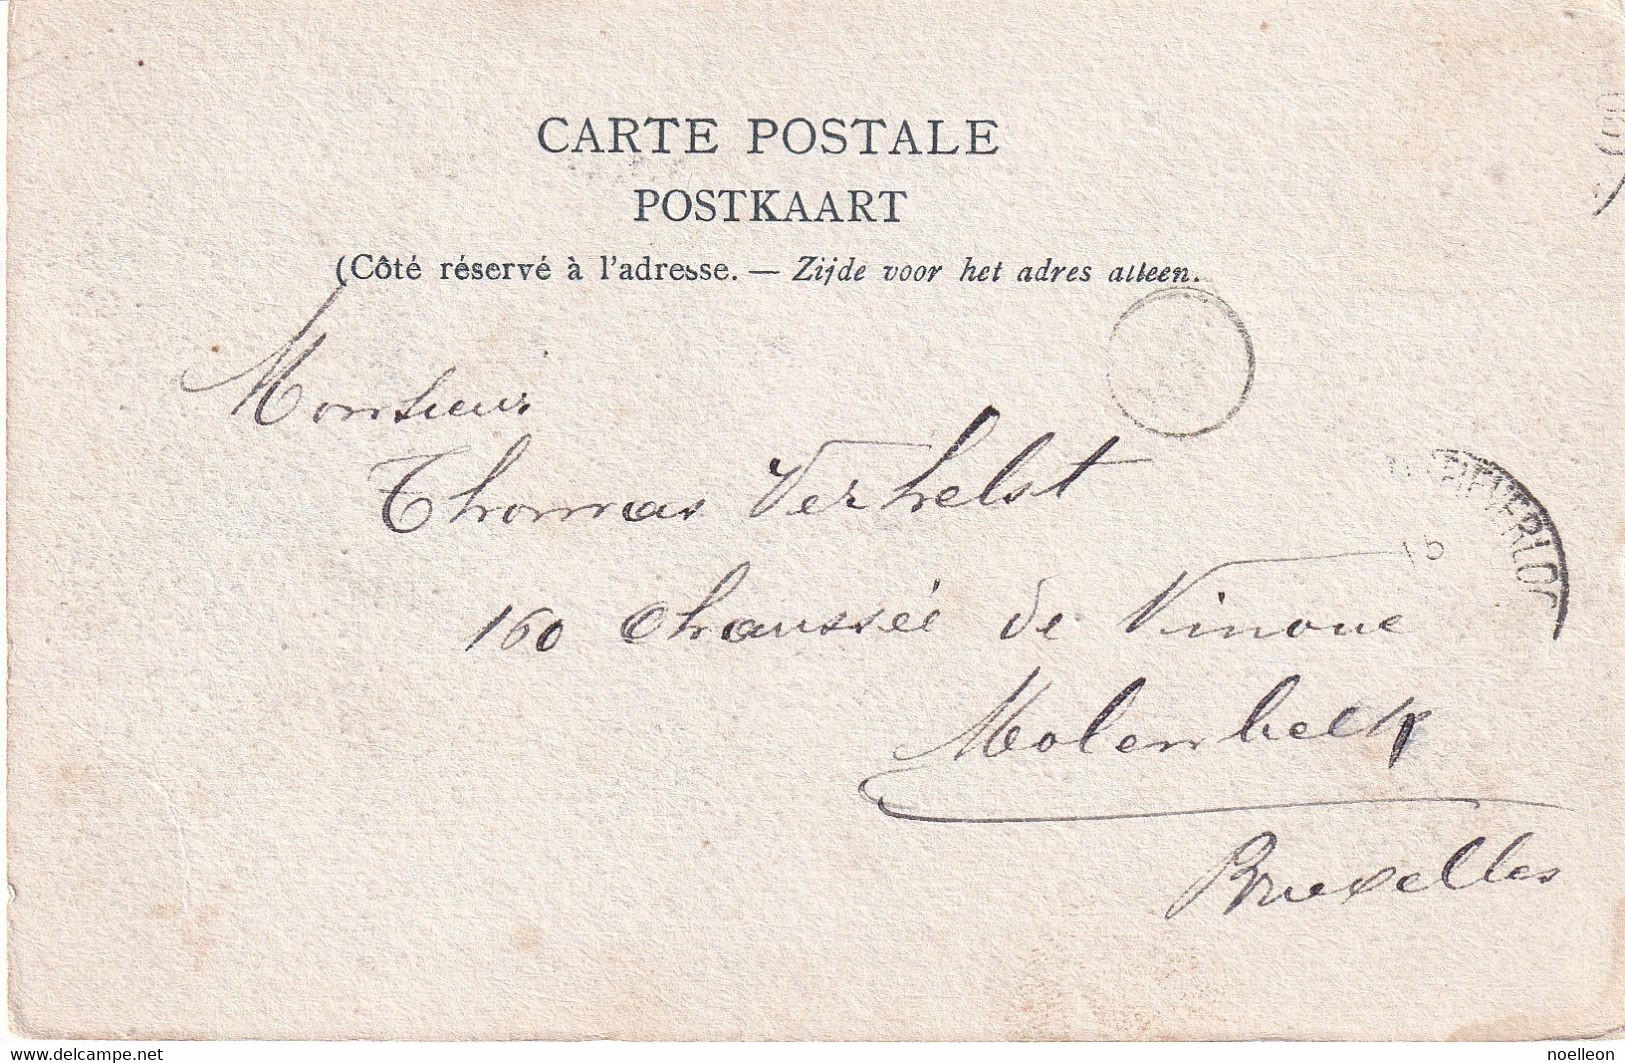 CARTE POSTALE
POSTKAART
(Côté réservé à l'adresse. — Zijde voor het adres alleen.
Monsieur
Thomas Verhelst
160 Chaussée de Ninove
Molenbeek
Bruxelles
15
www.delcampe.net
noelleon